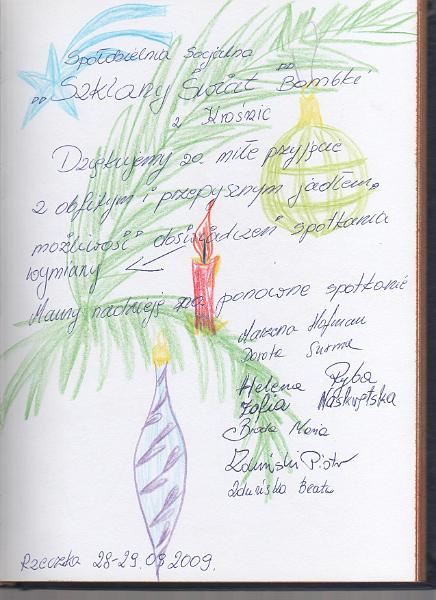 Spółdzielnia Socjalna
"Szklany Świat Bombki"
z Krośnic
Dziękujemy za miłe przyjęcie
z obfitym i przepysznym jadłem,
możliwość doświadczeń spotkania
wymiany
Mamy nadzieję na ponowne spotkanie
Marzena Hofman
Dorota Surma
Helena Ryba
Zofia Naskrętska
Broda Maria
Zduński Piotr
Zduńska Beata
Rzeczka 28-29.08.2009.